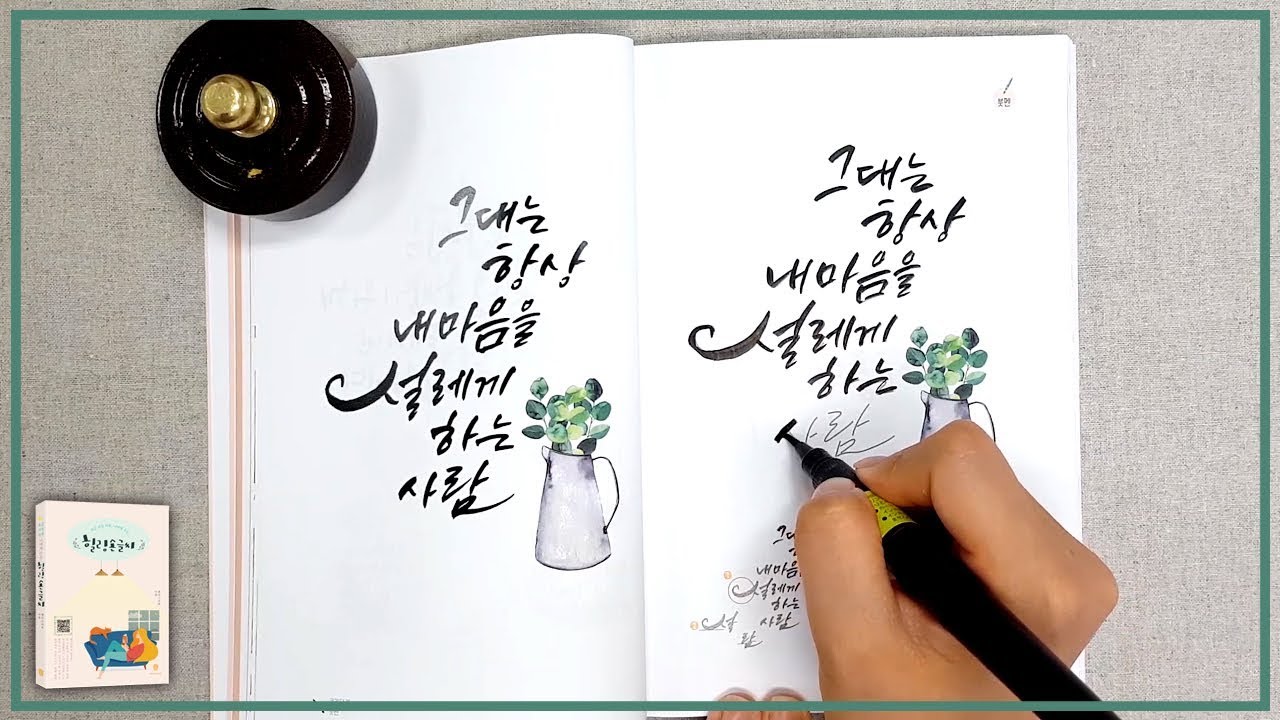 그대는
항상
내마음을
설레게
하는
사람
붓펜
그대는
항상
내마음을
설레게
하는
사람
내마음
설레게
하는
사람
설
람
힐링손글씨